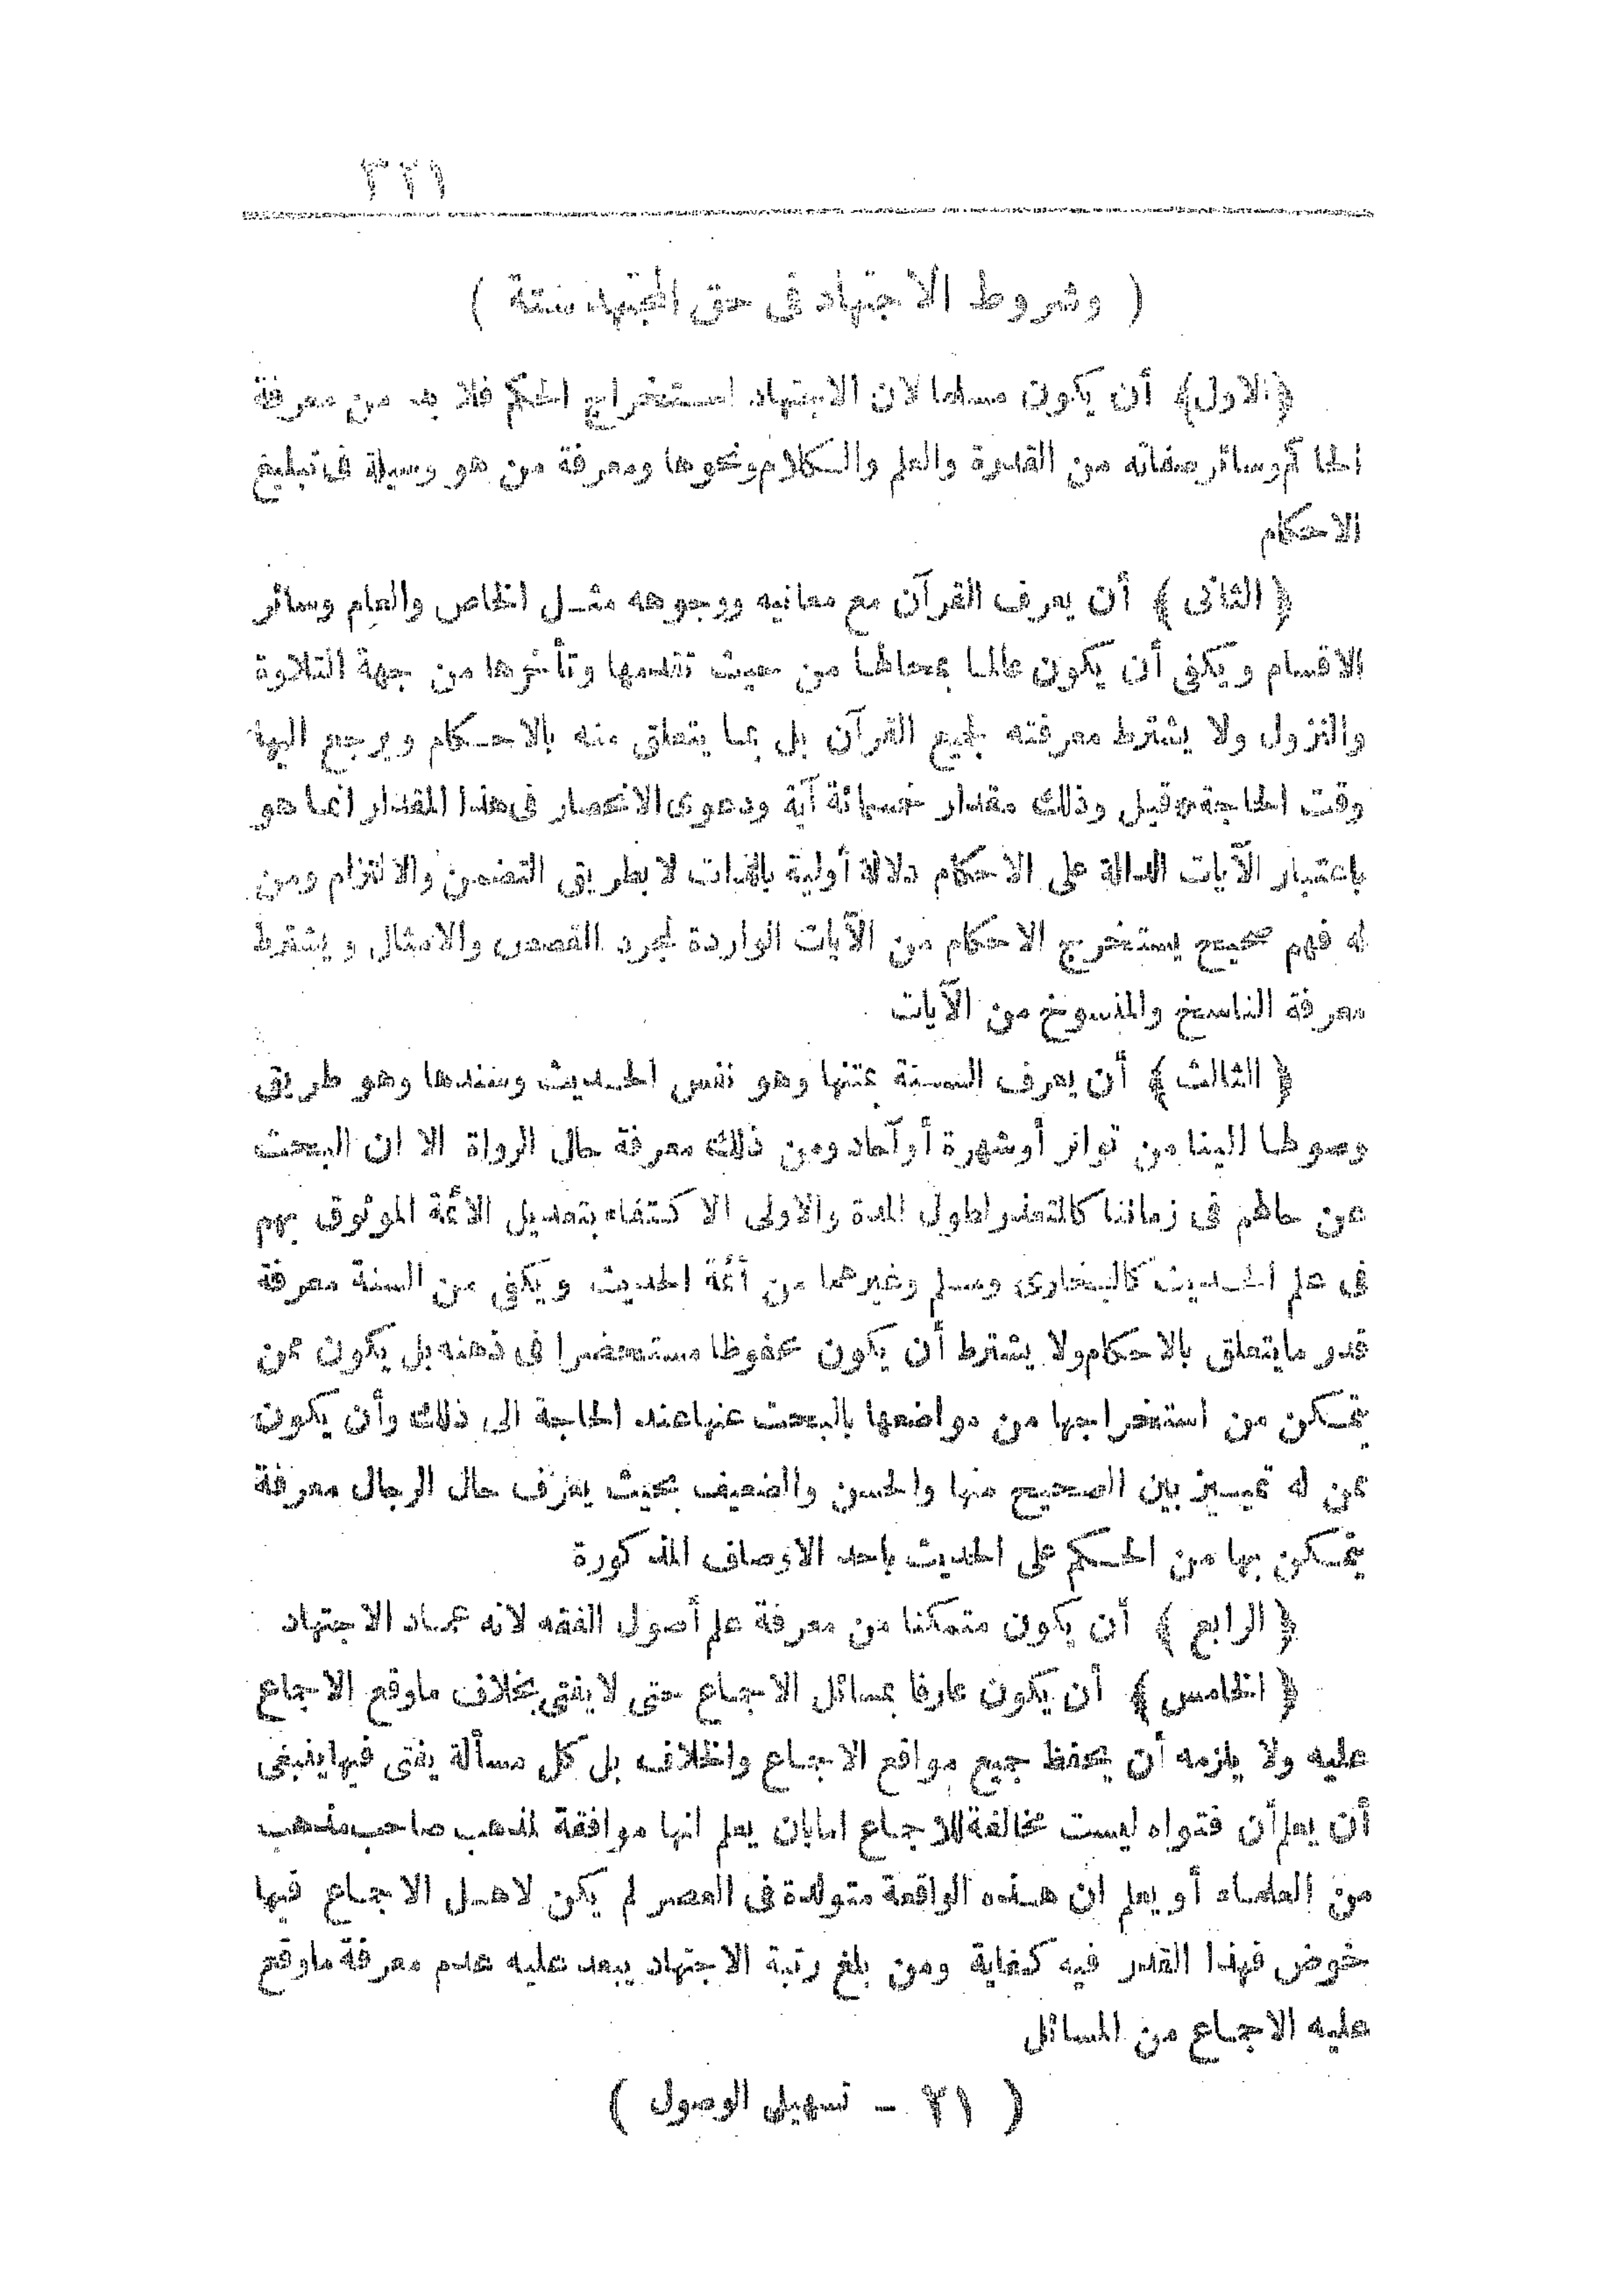 ٣٢١
( وشروط الاجتهاد فى حق المجتهد ستة )
﴿الاول﴾ أن يكون مسلما لان الاجتهاد استخراج الحكم فلا بد من معرفة
الحاكم وسائر صفاته من القدرة والعلم والكلام ونحوها ومعرفة من هو وسيلة فى تبليغ
الاحكام
﴿ الثانى ﴾ أن يعرف القرآن مع معانيه ووجوهه مثل الخاص والعام وسائر
الاقسام ويكفى أن يكون عالما بمحالها من حيث تقدمها وتأخرها من جهة التلاوة
والنزول ولا يشترط معرفته لجميع القرآن بل بما يتعلق منه بالاحكام ويرجع اليها
وقت الحاجة قيل وذلك مقدار خمسمائة آية ودعوى الانحصار فى هذا المقدار انما هو
باعتبار الآيات الدالة على الاحكام دلالة أولية بالذات لا بطريق التضمن والالتزام ومن
له فهم صحيح يستخرج الاحكام من الآيات الواردة لمجرد القصص والامثال ويشترط
معرفة الناسخ والمنسوخ من الآيات
﴿ الثالث ﴾ أن يعرف السنة بمتنها وهو نفس الحديث وسندها وهو طريق
وصولها الينا من تواتر أو شهرة أو آحاد ومن ذلك معرفة حال الرواة الا ان البحث
عن حالهم فى زماننا كالمتعذر لطول المدة والاولى الاكتفاء بتعديل الائمة الموثوق بهم
فى علم الحديث كالبخارى ومسلم وغيرهما من أئمة الحديث ويكفى من السنة معرفة
قدر ما يتعلق بالاحكام ولا يشترط أن يكون محفوظا مستحضرا فى ذهنه بل يكون ممن
يتمكن من استخراجها من مواضعها بالبحث عنها عند الحاجة الى ذلك وأن يكون
ممن له تمييز بين الصحيح منها والحسن والضعيف بحيث يعرف حال الرجال معرفة
يتمكن بها من الحكم على الحديث باحد الاوصاف المذكورة
﴿ الرابع ﴾ أن يكون متمكنا من معرفة علم أصول الفقه لانه عماد الاجتهاد
﴿ الخامس ﴾ أن يكون عارفا بمسائل الاجماع حتى لا يفتى بخلاف ما وقع الاجماع
عليه ولا يلزمه أن يحفظ جميع مواقع الاجماع والخلاف بل كل مسألة يفتى فيها ينبغى
أن يعلم أن فتواه ليست مخالفة للاجماع اما بان يعلم انها موافقة لمذهب صاحب مذهب
من العلماء أو يعلم ان هذه الواقعة متولدة فى العصر لم يكن لاهل الاجماع فيها
خوض فهذا القدر فيه كفاية ومن بلغ رتبة الاجتهاد يبعد عليه عدم معرفة ما وقع
عليه الاجماع من المسائل
( ٢١ - تسهيل الوصول )